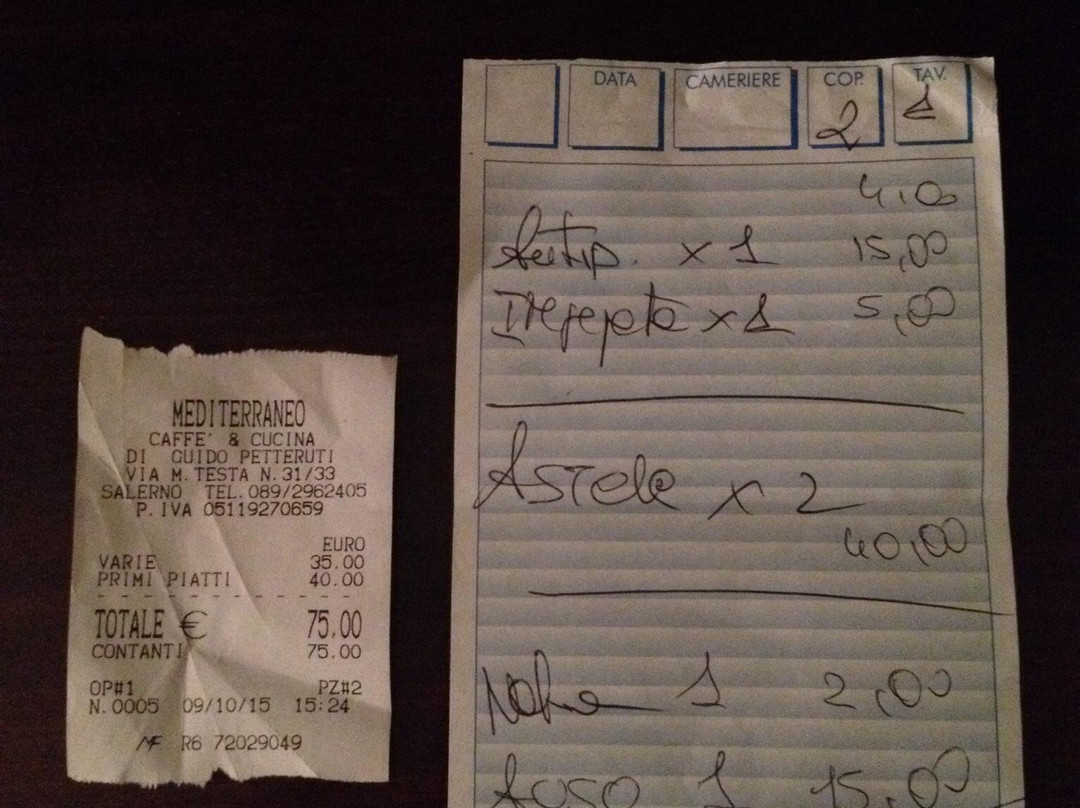 MEDITERRANEO
CAFFE' & CUCINA
DI GUIDO PETTERUTI
VIA M. TESTA N. 31/33
SALERNO TEL. 089/2962405
P. IVA 05119270659
EURO
VARIE 35.00
PRIMI PIATTI 40.00
TOTALE € 75.00
CONTANTI 75.00
OP#1 PZ#2
N.0005 09/10/15 15:24
MF R6 72029049
DATA CAMERIERE COP. TAV.
2 1
4,00
Antip. x 1 15,00
x 1 5,00
x 2
40,00
1 2,00
1 15,00